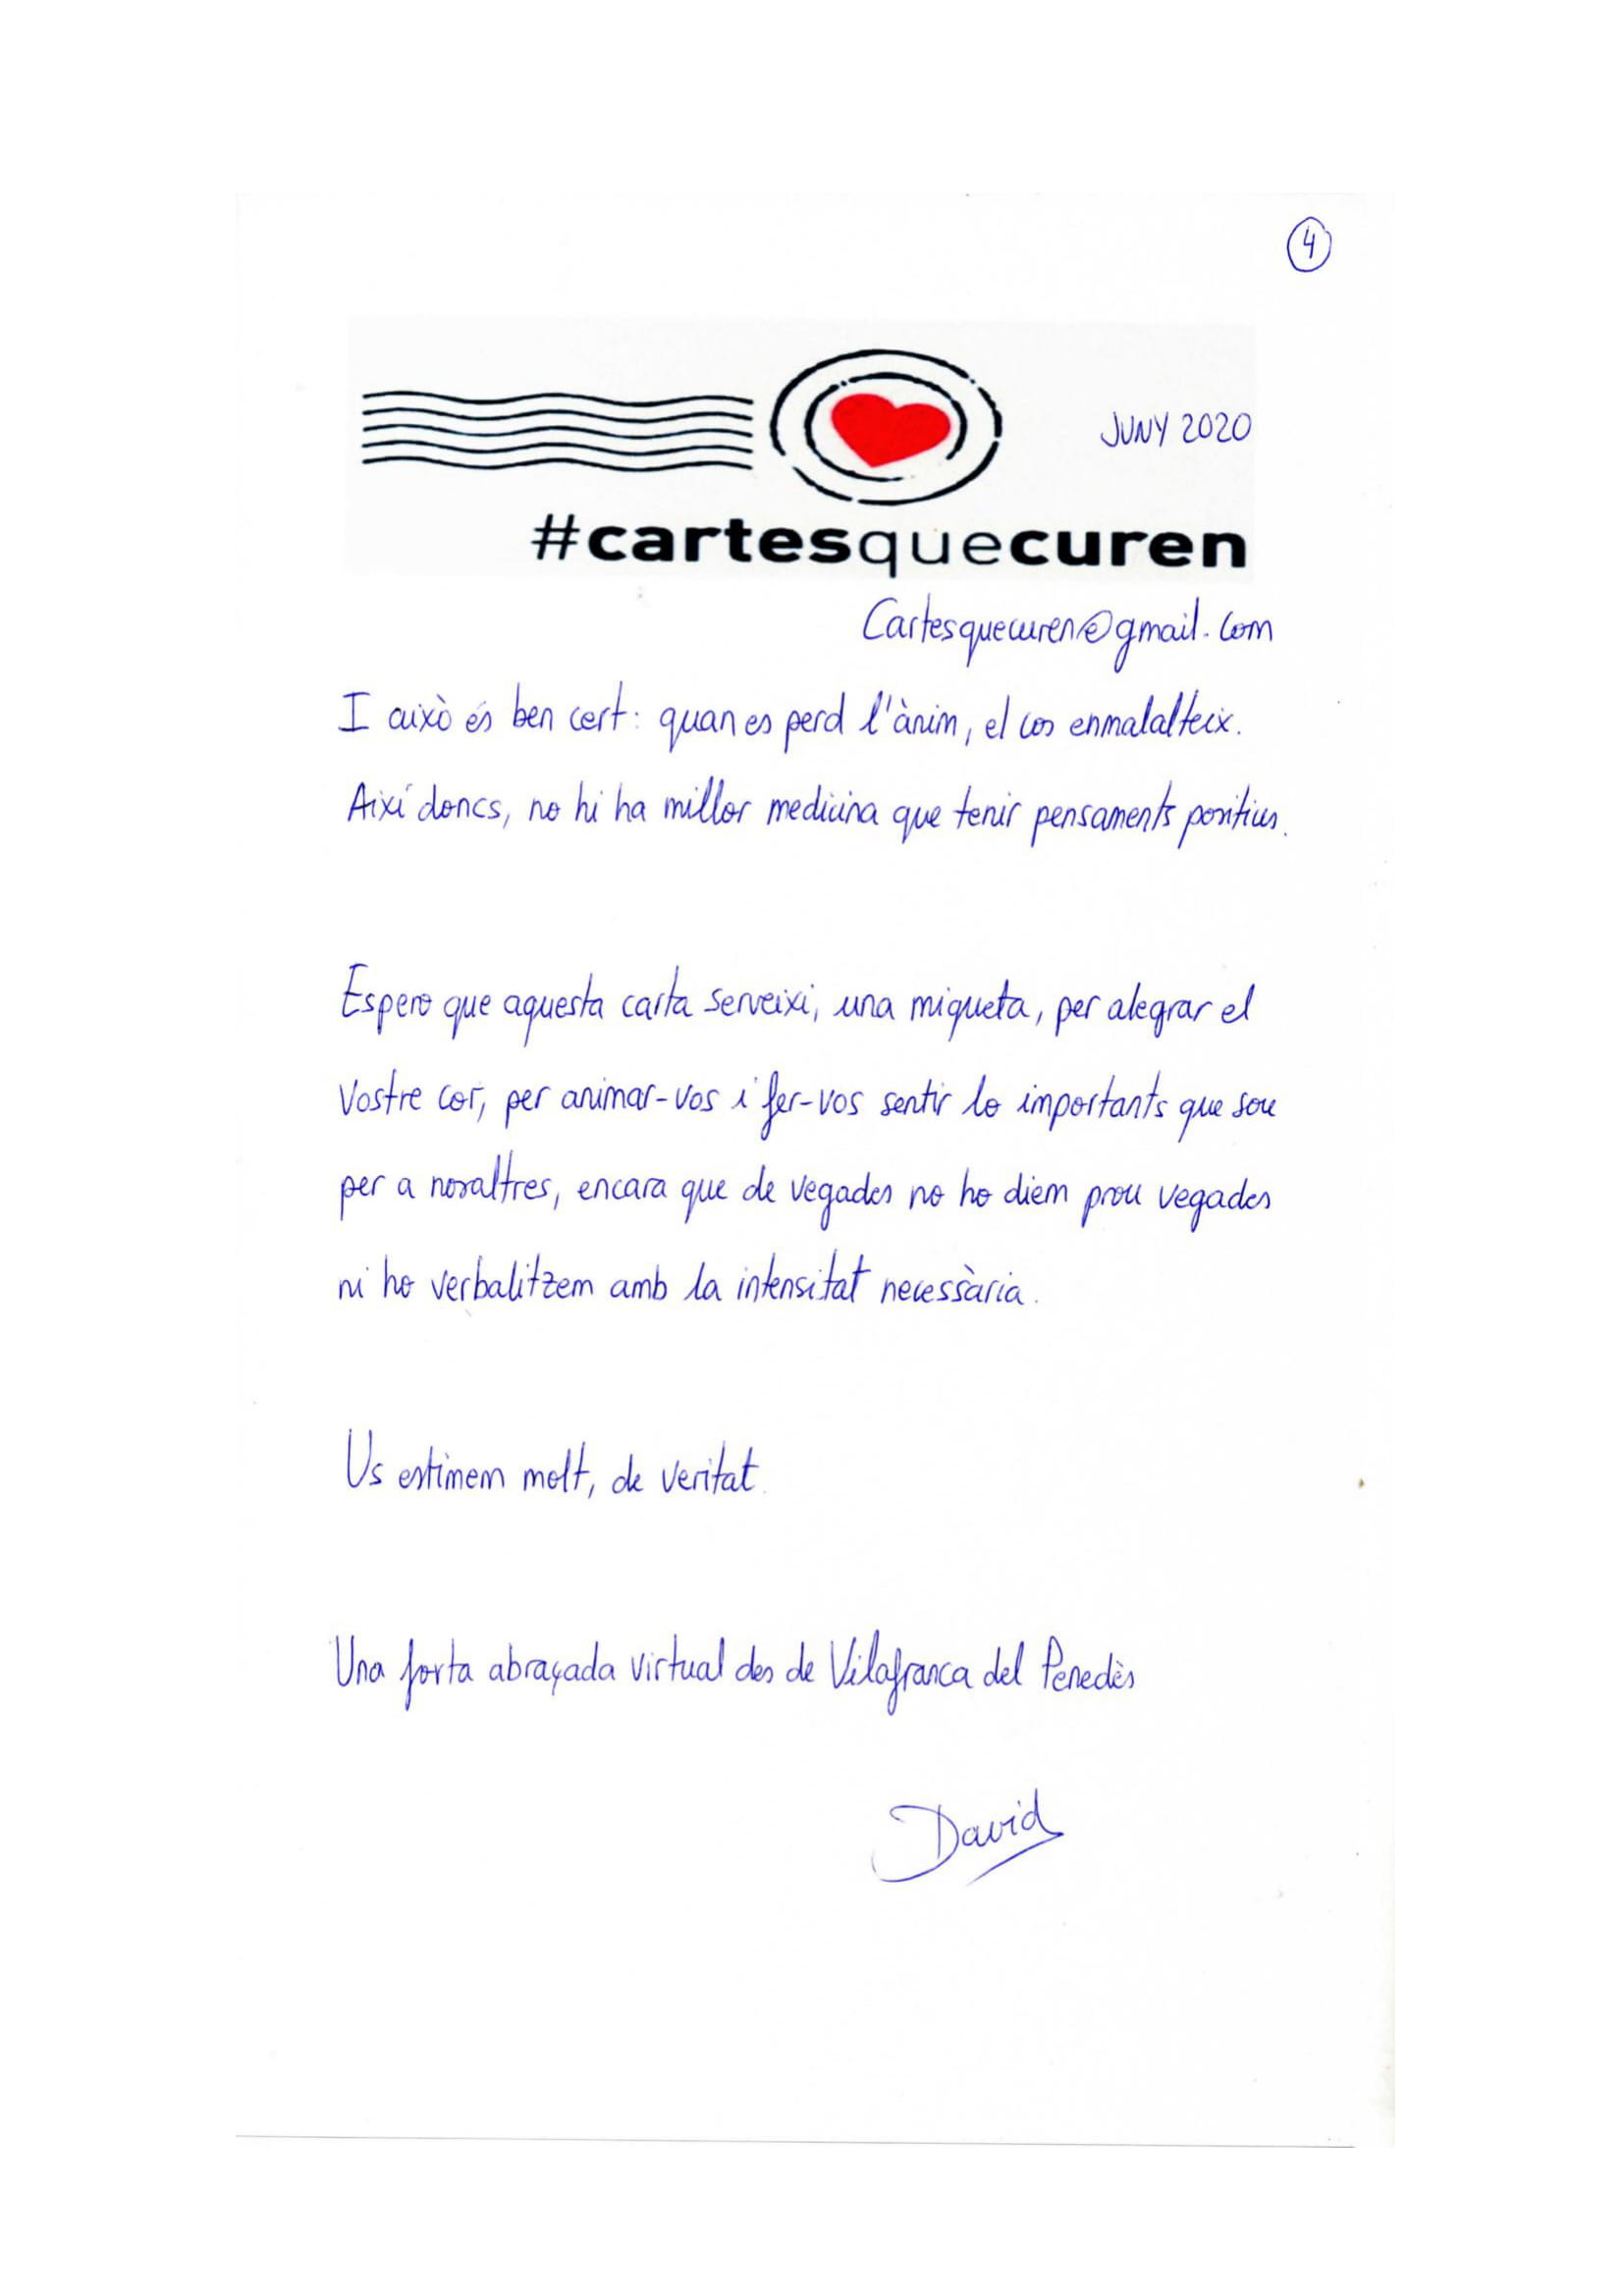 4
JUNY 2020
#cartesquecuren
Cartesquecuren@gmail.com
I això és ben cert: quan es perd l'ànim, el cos enmalalteix.
Així doncs, no hi ha millor medicina que tenir pensaments positius.
Espero que aquesta carta serveixi, una miqueta, per alegrar el
vostre cor, per animar-vos i fer-vos sentir lo importants que sou
per a nosaltres, encara que de vegades no ho diem prou vegades
ni ho verbalitzem amb la intensitat necessària.
Us estimem molt, de veritat.
Una forta abraçada virtual des de Vilafranca del Penedès
David